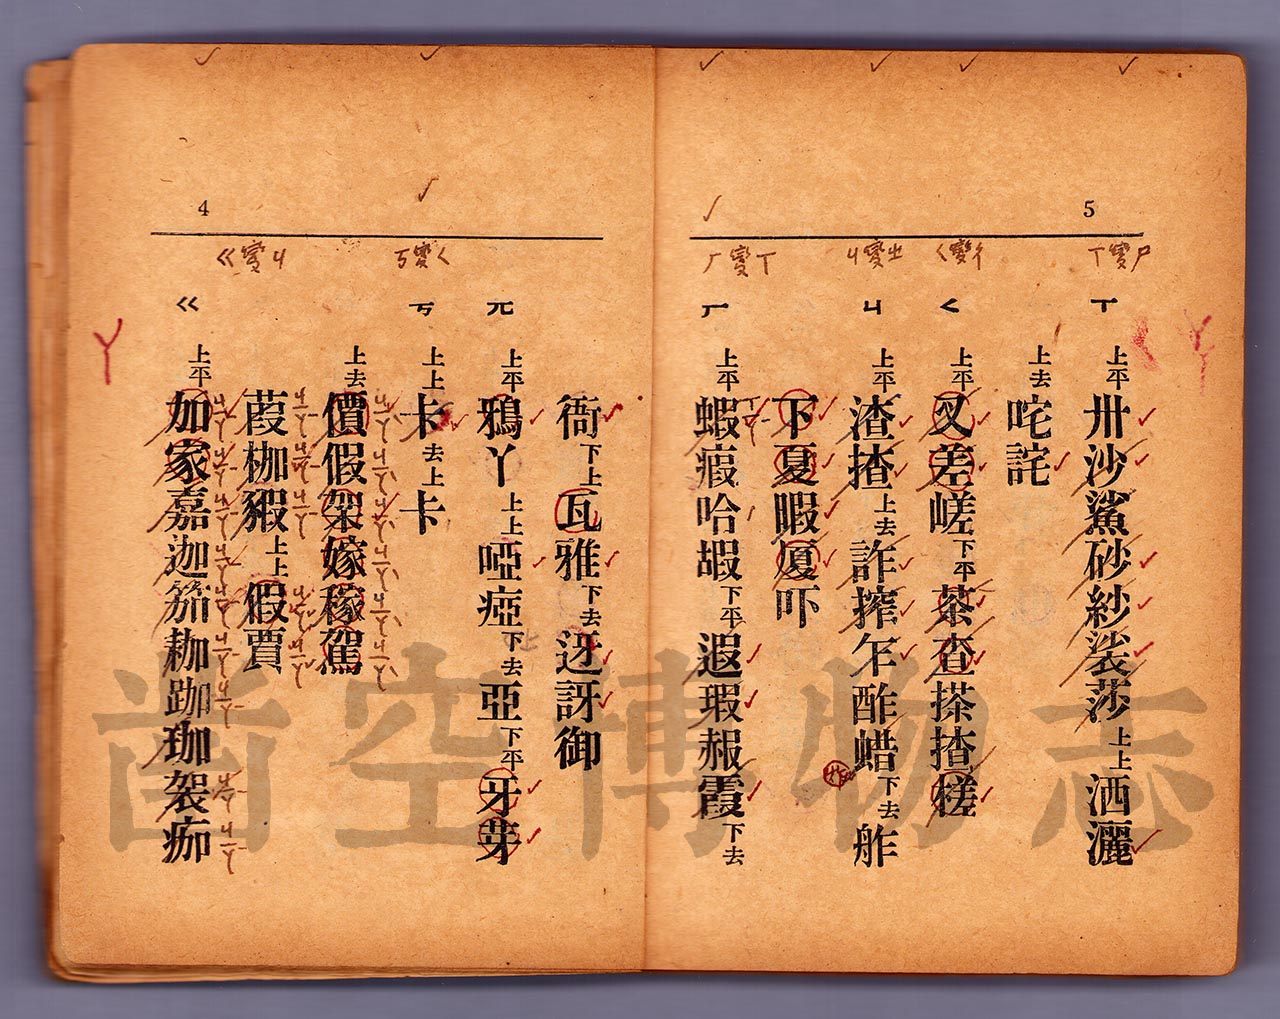 4
ㄍ變ㄐ
ㄎ變ㄑ
ㄚ
ㄍ 上平 加家嘉迦笳耞跏珈袈痂
葭枷豭 上上 假賈
上去 價假架嫁稼駕
ㄎ 上上 卡 去上 卡
ㄫ 上平 鴉丫 上上 啞瘂 下去 亞 下平 牙芽
衙 下上 瓦雅 下去 迓訝御
5
ㄏ變ㄒ
ㄐ變ㄓ
ㄑ變ㄔ
ㄒ變ㄕ
ㄏ 上平 蝦瘕哈嘏 下平 遐瑕赮霞 下去
下夏暇厦吓
ㄐ 上平 渣揸 上去 詐搾乍酢蜡 下去 舴
ㄑ 上平 叉差嵯 下平 茶查搽揸槎
上去 咤詫
ㄒ 上平 卅沙鯊砂紗裟莎 上上 洒灑
ㄚ
凿空博物志